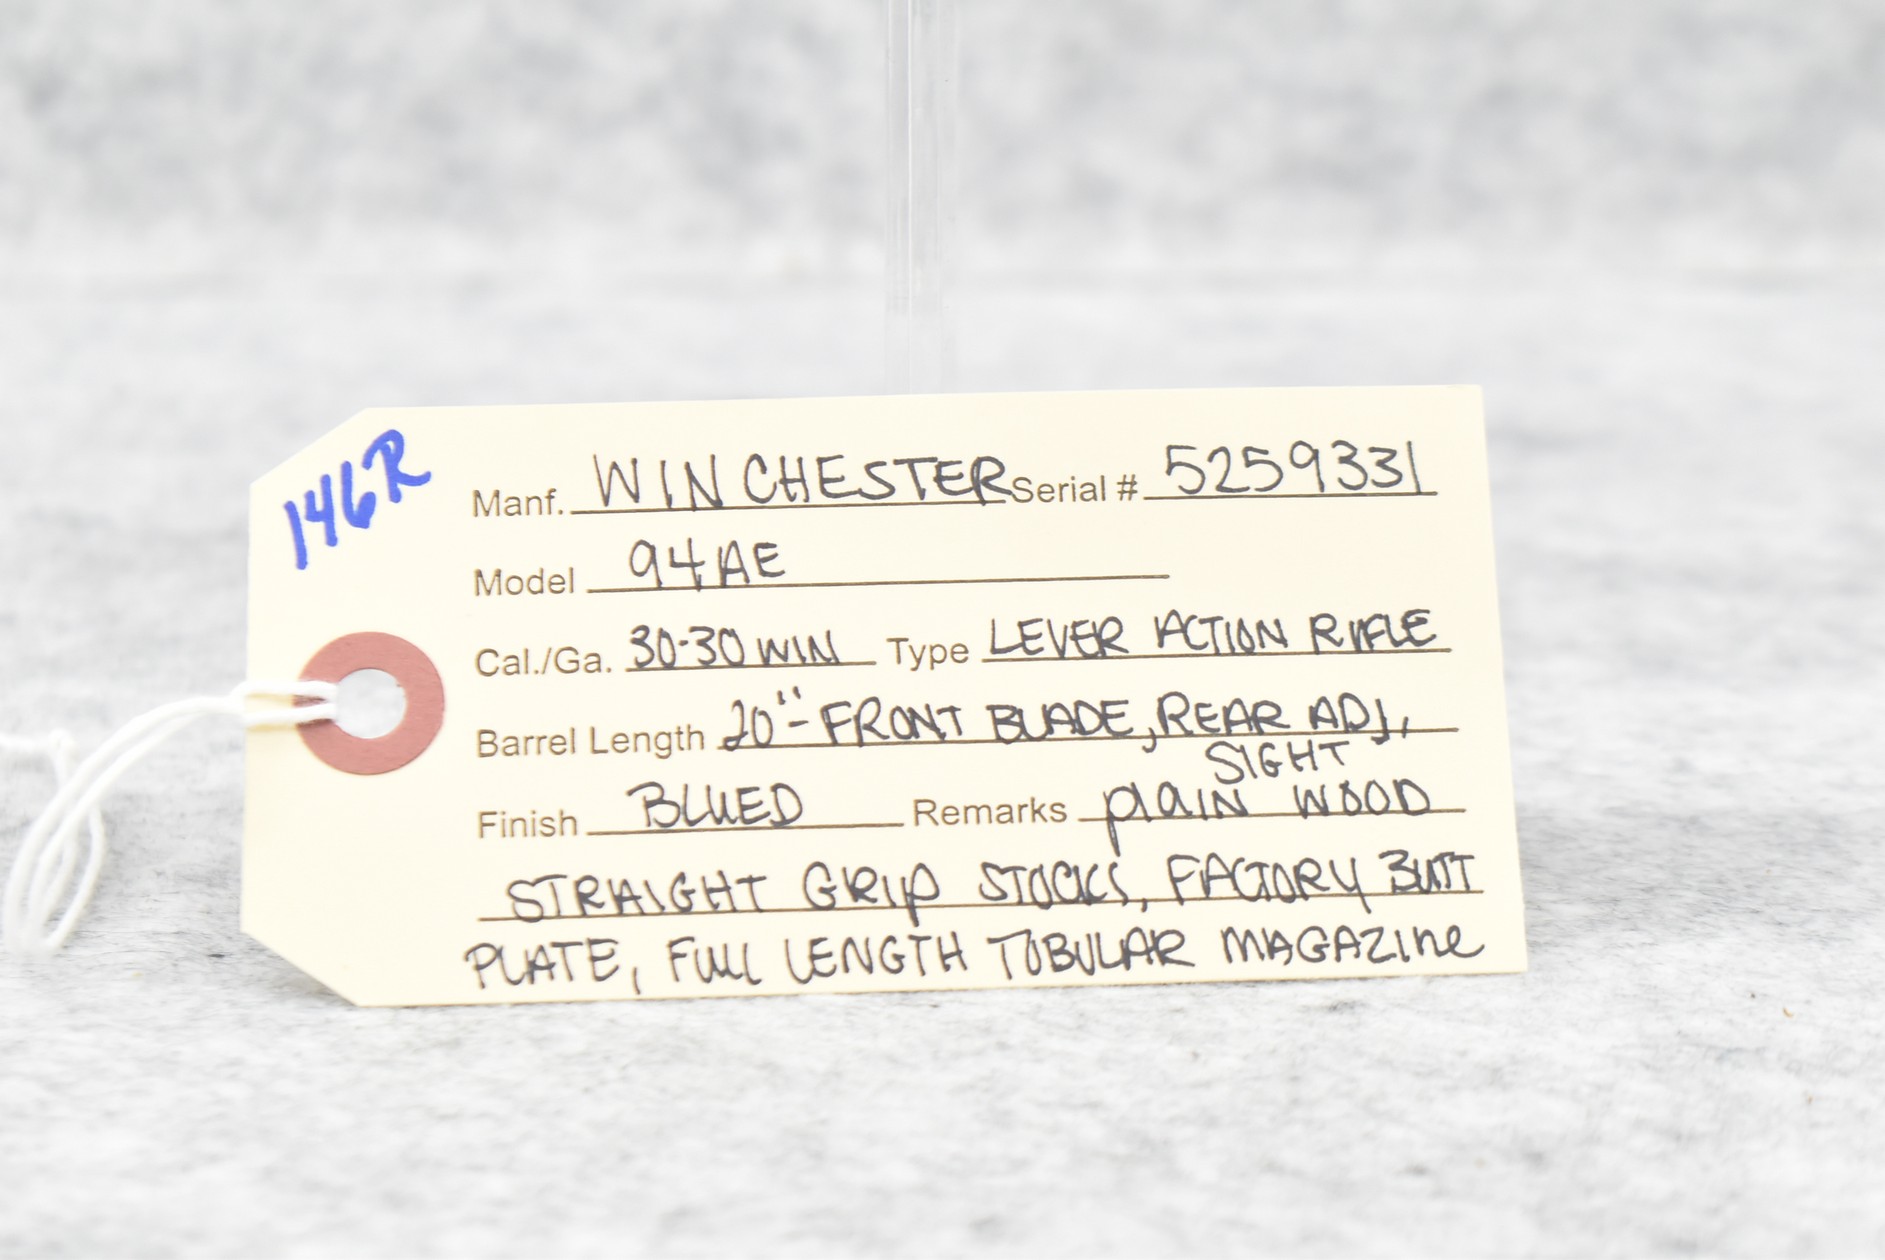 146R
Manf. WINCHESTER Serial # 5259331
Model 94AE
Cal./Ga. 30-30 WIN Type LEVER ACTION RIFLE
Barrel Length 20"- FRONT BLADE, REAR ADJ,
SIGHT
Finish BLUED Remarks plAIN WOOD
STRAIGHT GRIP STOCKS, FACTORY BUTT
PLATE, FULL LENGTH TUBULAR MAGAZINE